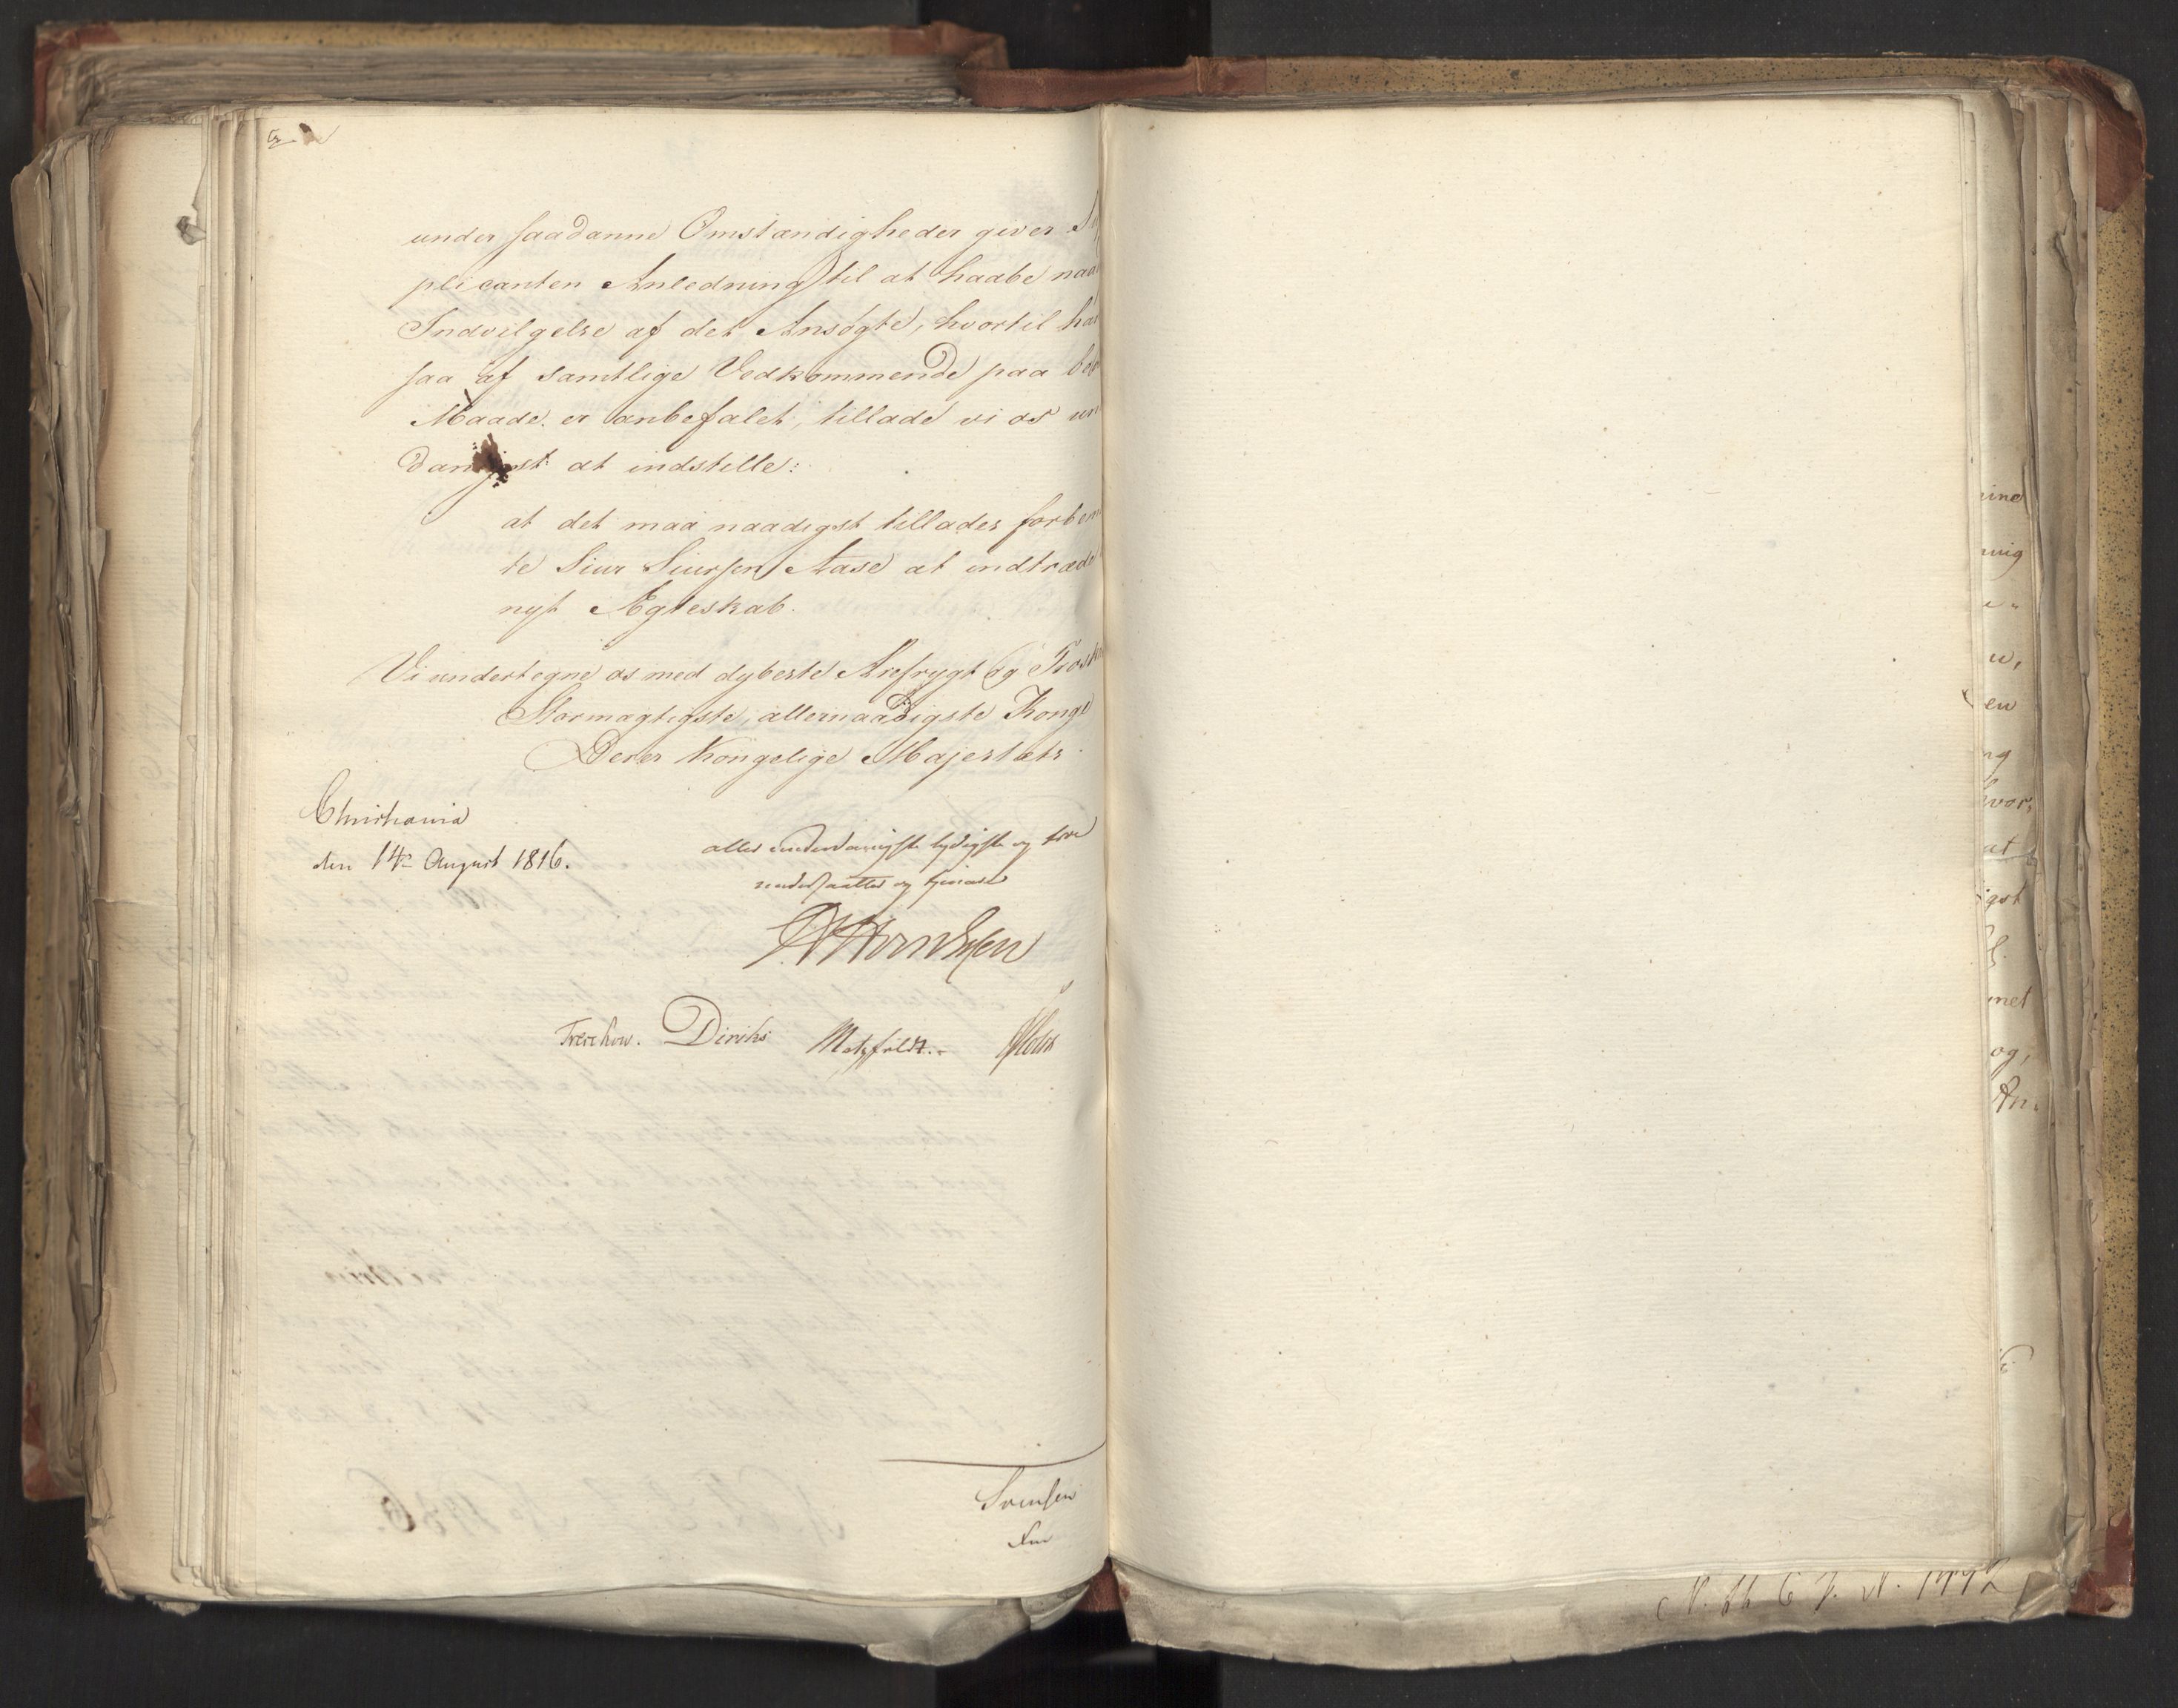 under saadanne Omstændigheder giver Su
plicanten Anledning til at haabe naa
Indvilgelse af det Ansøgte, hvortil han
saa af samtlige Vedkommende paa
Maade er anbefalet, tillade vi os un
danigst at indstille:
at det maa naadigst tillades forbem
te Siur Siursen Aase at indtræde
nyt Ægteskab.
Vi undertegne os med dybeste Ærefrygt og Trosk
Stormægtigste, allernaadigste Konge
Deres Kongelige Majestæts
Christiania
den 14de August 1816.
allerunderdanigste lydigste og troe
undersaatter og tjenere
Treschow. Diriks Motzfeldt.
Svensen
ine
ning
u,
en
ng
hvor,
at
igst
net
og,
An,